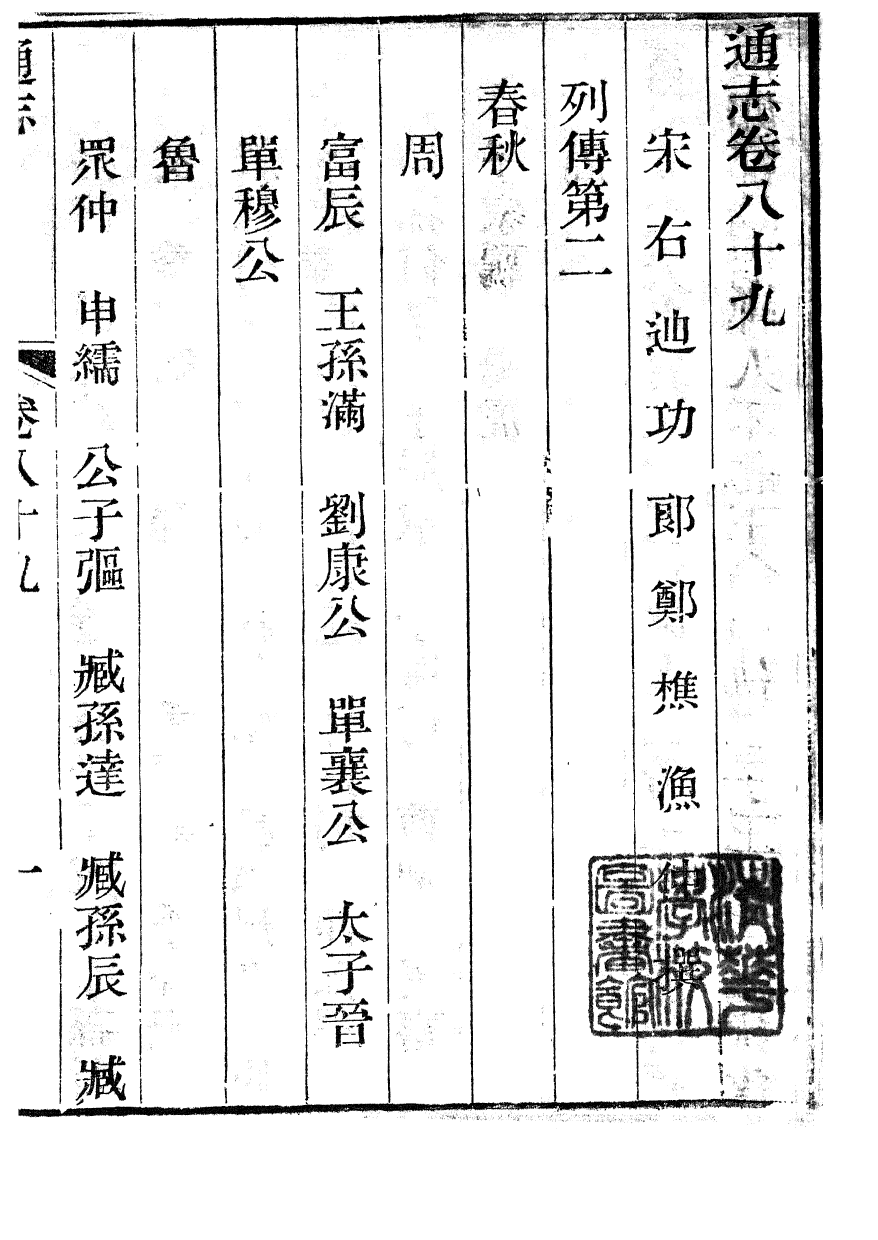 通志卷八十九
宋右迪功郎鄭樵漁仲撰
列傳第二
春秋
周
富辰　王孫滿　劉康公　單襄公　太子晉
單穆公
魯
眾仲　申繻　公子彄　臧孫達　臧孫辰　臧
通志　卷八十九　一
清華學校圖書館